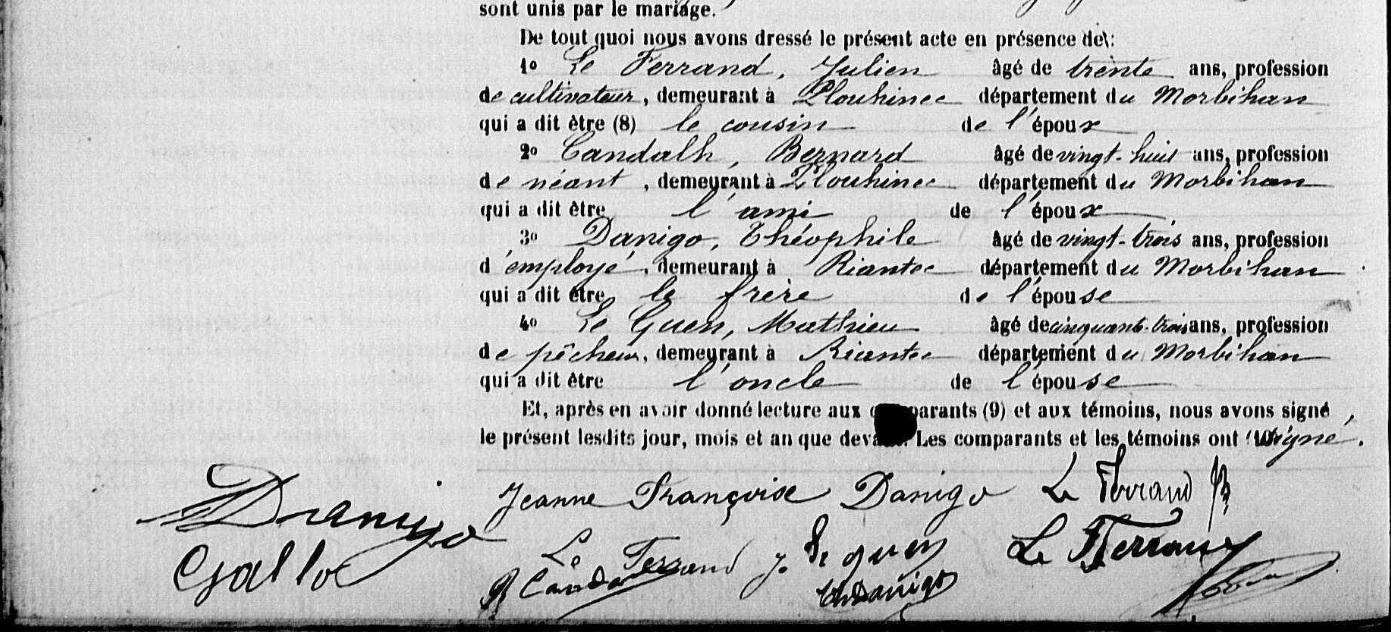 sont unis par le mariage.
De tout quoi nous avons dressé le présent acte en présence de :
1o Le Ferrand, Julien âgé de trente ans, profession
de cultivateur, demeurant à Plouhinec département du Morbihan
qui a dit être (8) le cousin de l'époux
2o Candalh, Bernard âgé de vingt-huit ans, profession
de néant, demeurant à Plouhinec département du Morbihan
qui a dit être l'ami de l'époux
3o Danigo, Théophile âgé de vingt-trois ans, profession
d'employé, demeurant à Riantec département du Morbihan
qui a dit être le frère de l'épouse
4o Le Guen, Mathieu âgé de cinquante-trois ans, profession
de pêcheur, demeurant à Riantec département du Morbihan
qui a dit être l'oncle de l'épouse
Et, après en avoir donné lecture aux comparants (9) et aux témoins, nous avons signé
le présent lesdits jour, mois et an que devant. Les comparants et les témoins ont signé.
Danigo Jeanne Françoise Danigo Le Ferrand
Gallo Le Ferrand J Le guen Le Ferrand
Danigo